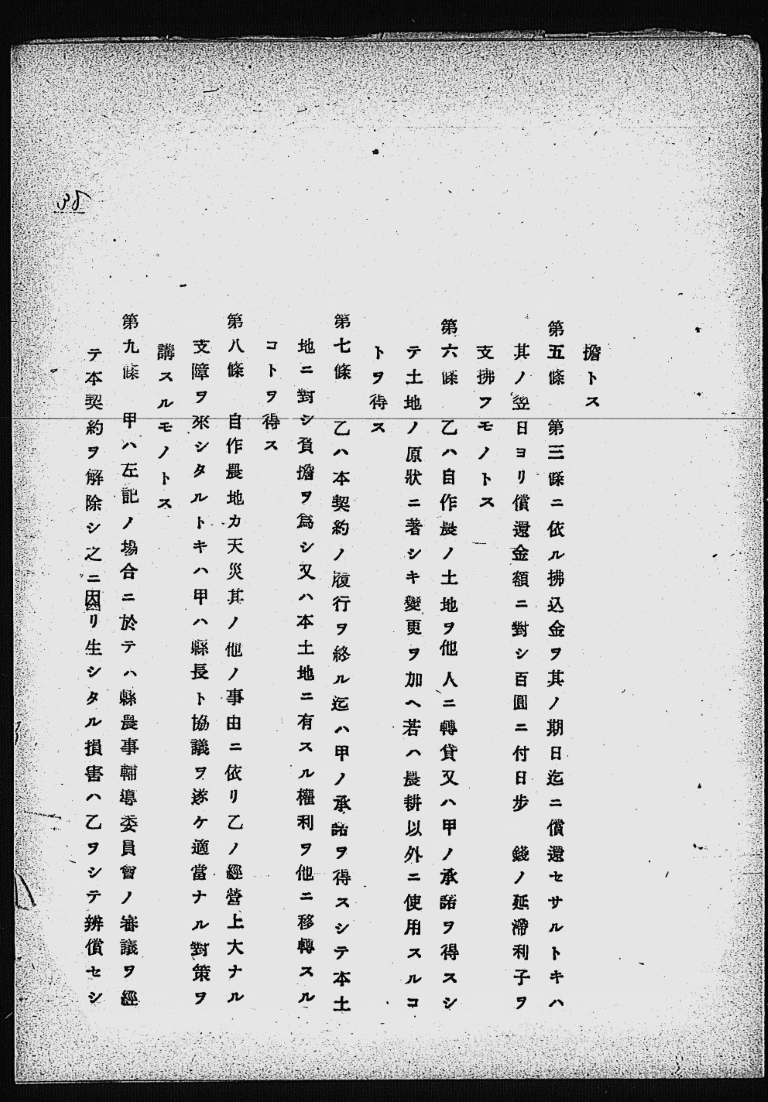 擔トス
第五條　第三條ニ依ル拂込金ヲ其ノ期日迄ニ償還セサルトキハ
其ノ翌日ヨリ償還金額ニ對シ百圓ニ付日步　錢ノ延滯利子ヲ
支拂フモノトス
第六條　乙ハ自作農ノ土地ヲ他人ニ轉貸又ハ甲ノ承諾ヲ得スシ
テ土地ノ原狀ニ著シキ變更ヲ加ヘ若ハ農耕以外ニ使用スルコ
トヲ得ス
第七條　乙ハ本契約ノ履行ヲ終ル迄ハ甲ノ承諾ヲ得スシテ本土
地ニ對シ負擔ヲ爲シ又ハ本土地ニ有スル權利ヲ他ニ移轉スル
コトヲ得ス
第八條　自作農地カ天災其ノ他ノ事由ニ依リ乙ノ經營上大ナル
支障ヲ來シタルトキハ甲ハ縣長ト協議ヲ遂ケ適當ナル對策ヲ
講スルモノトス
第九條　甲ハ左記ノ場合ニ於テハ縣農事輔導委員會ノ審議ヲ經
テ本契約ヲ解除シ之ニ因リ生シタル損害ハ乙ヲシテ辨償セシ